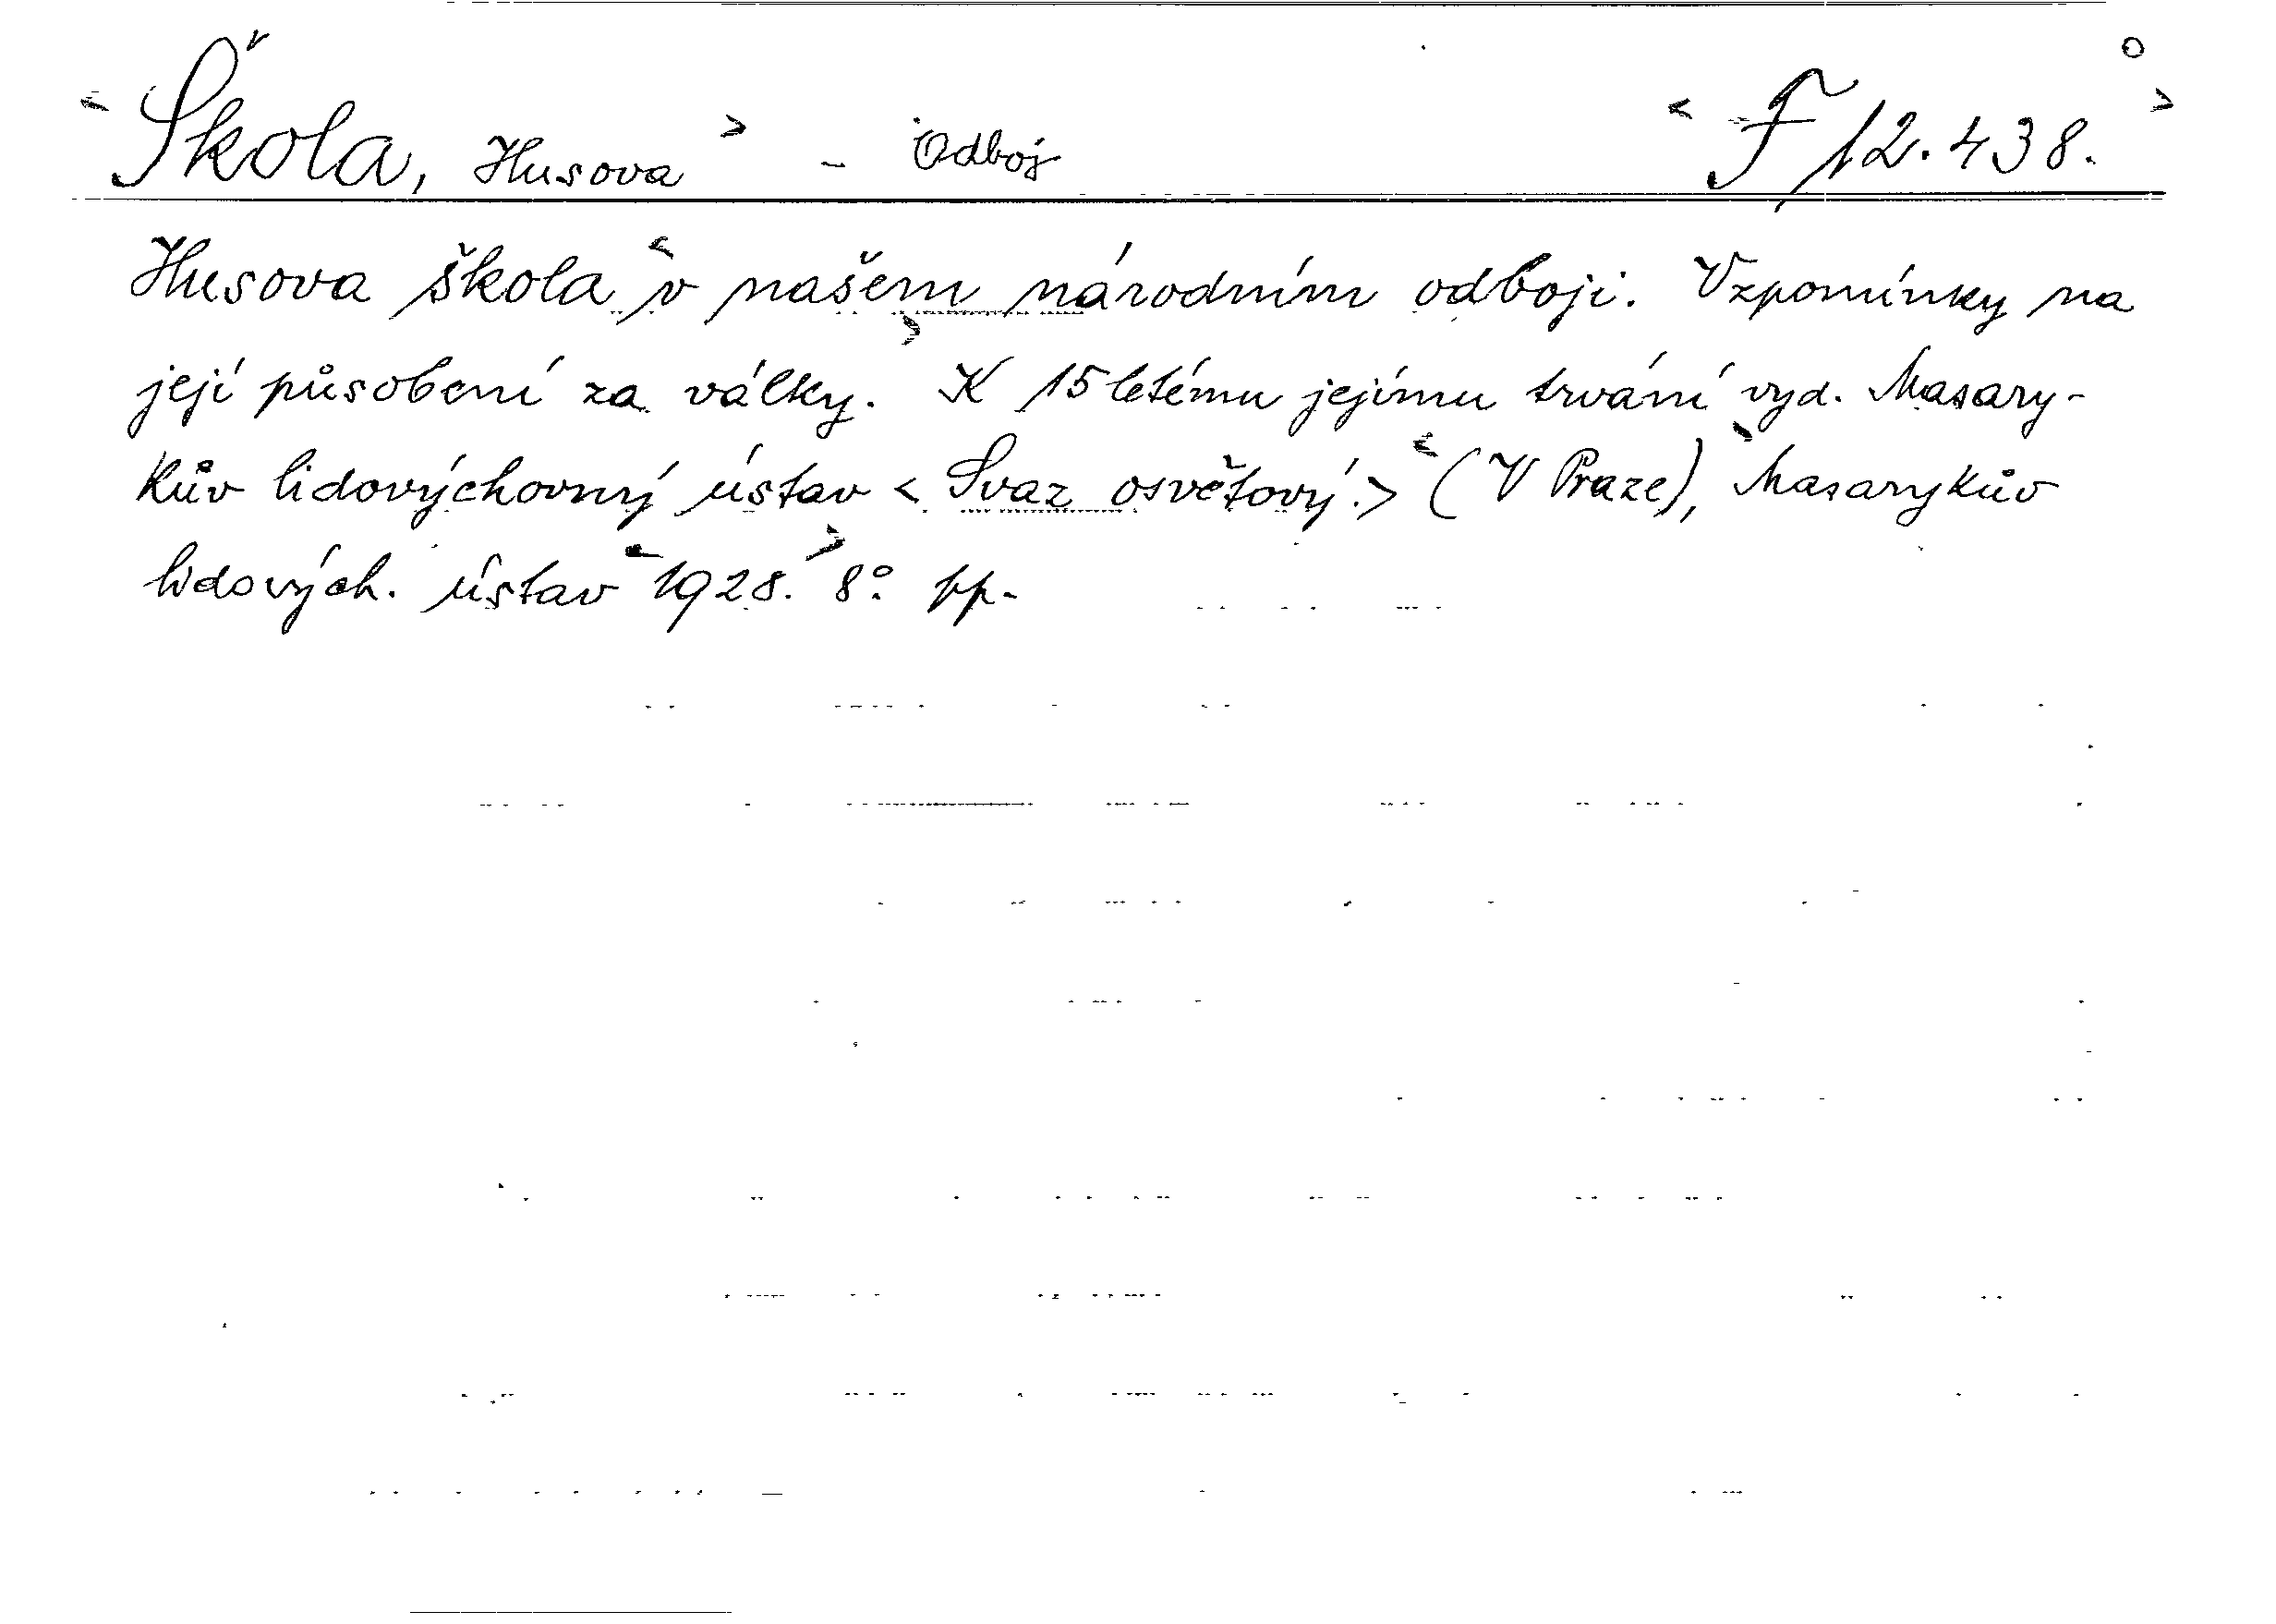 <Škola, Husova> - Odboj <F 12.438.>
Husova škola <v našem národním odboji. Vzpomínky na
její působení za války.> K 15letému jejímu trvání vyd. Masary-
kův lidovýchovný ústav <Svaz osvětový.> <(V Praze),> Masarykův
lidových. ústav <1928.> 8° pp.